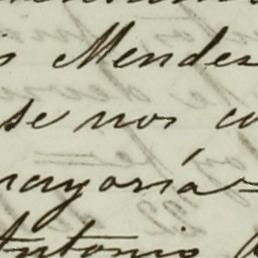 Mendez
se nos co
mayoría =
Antonio